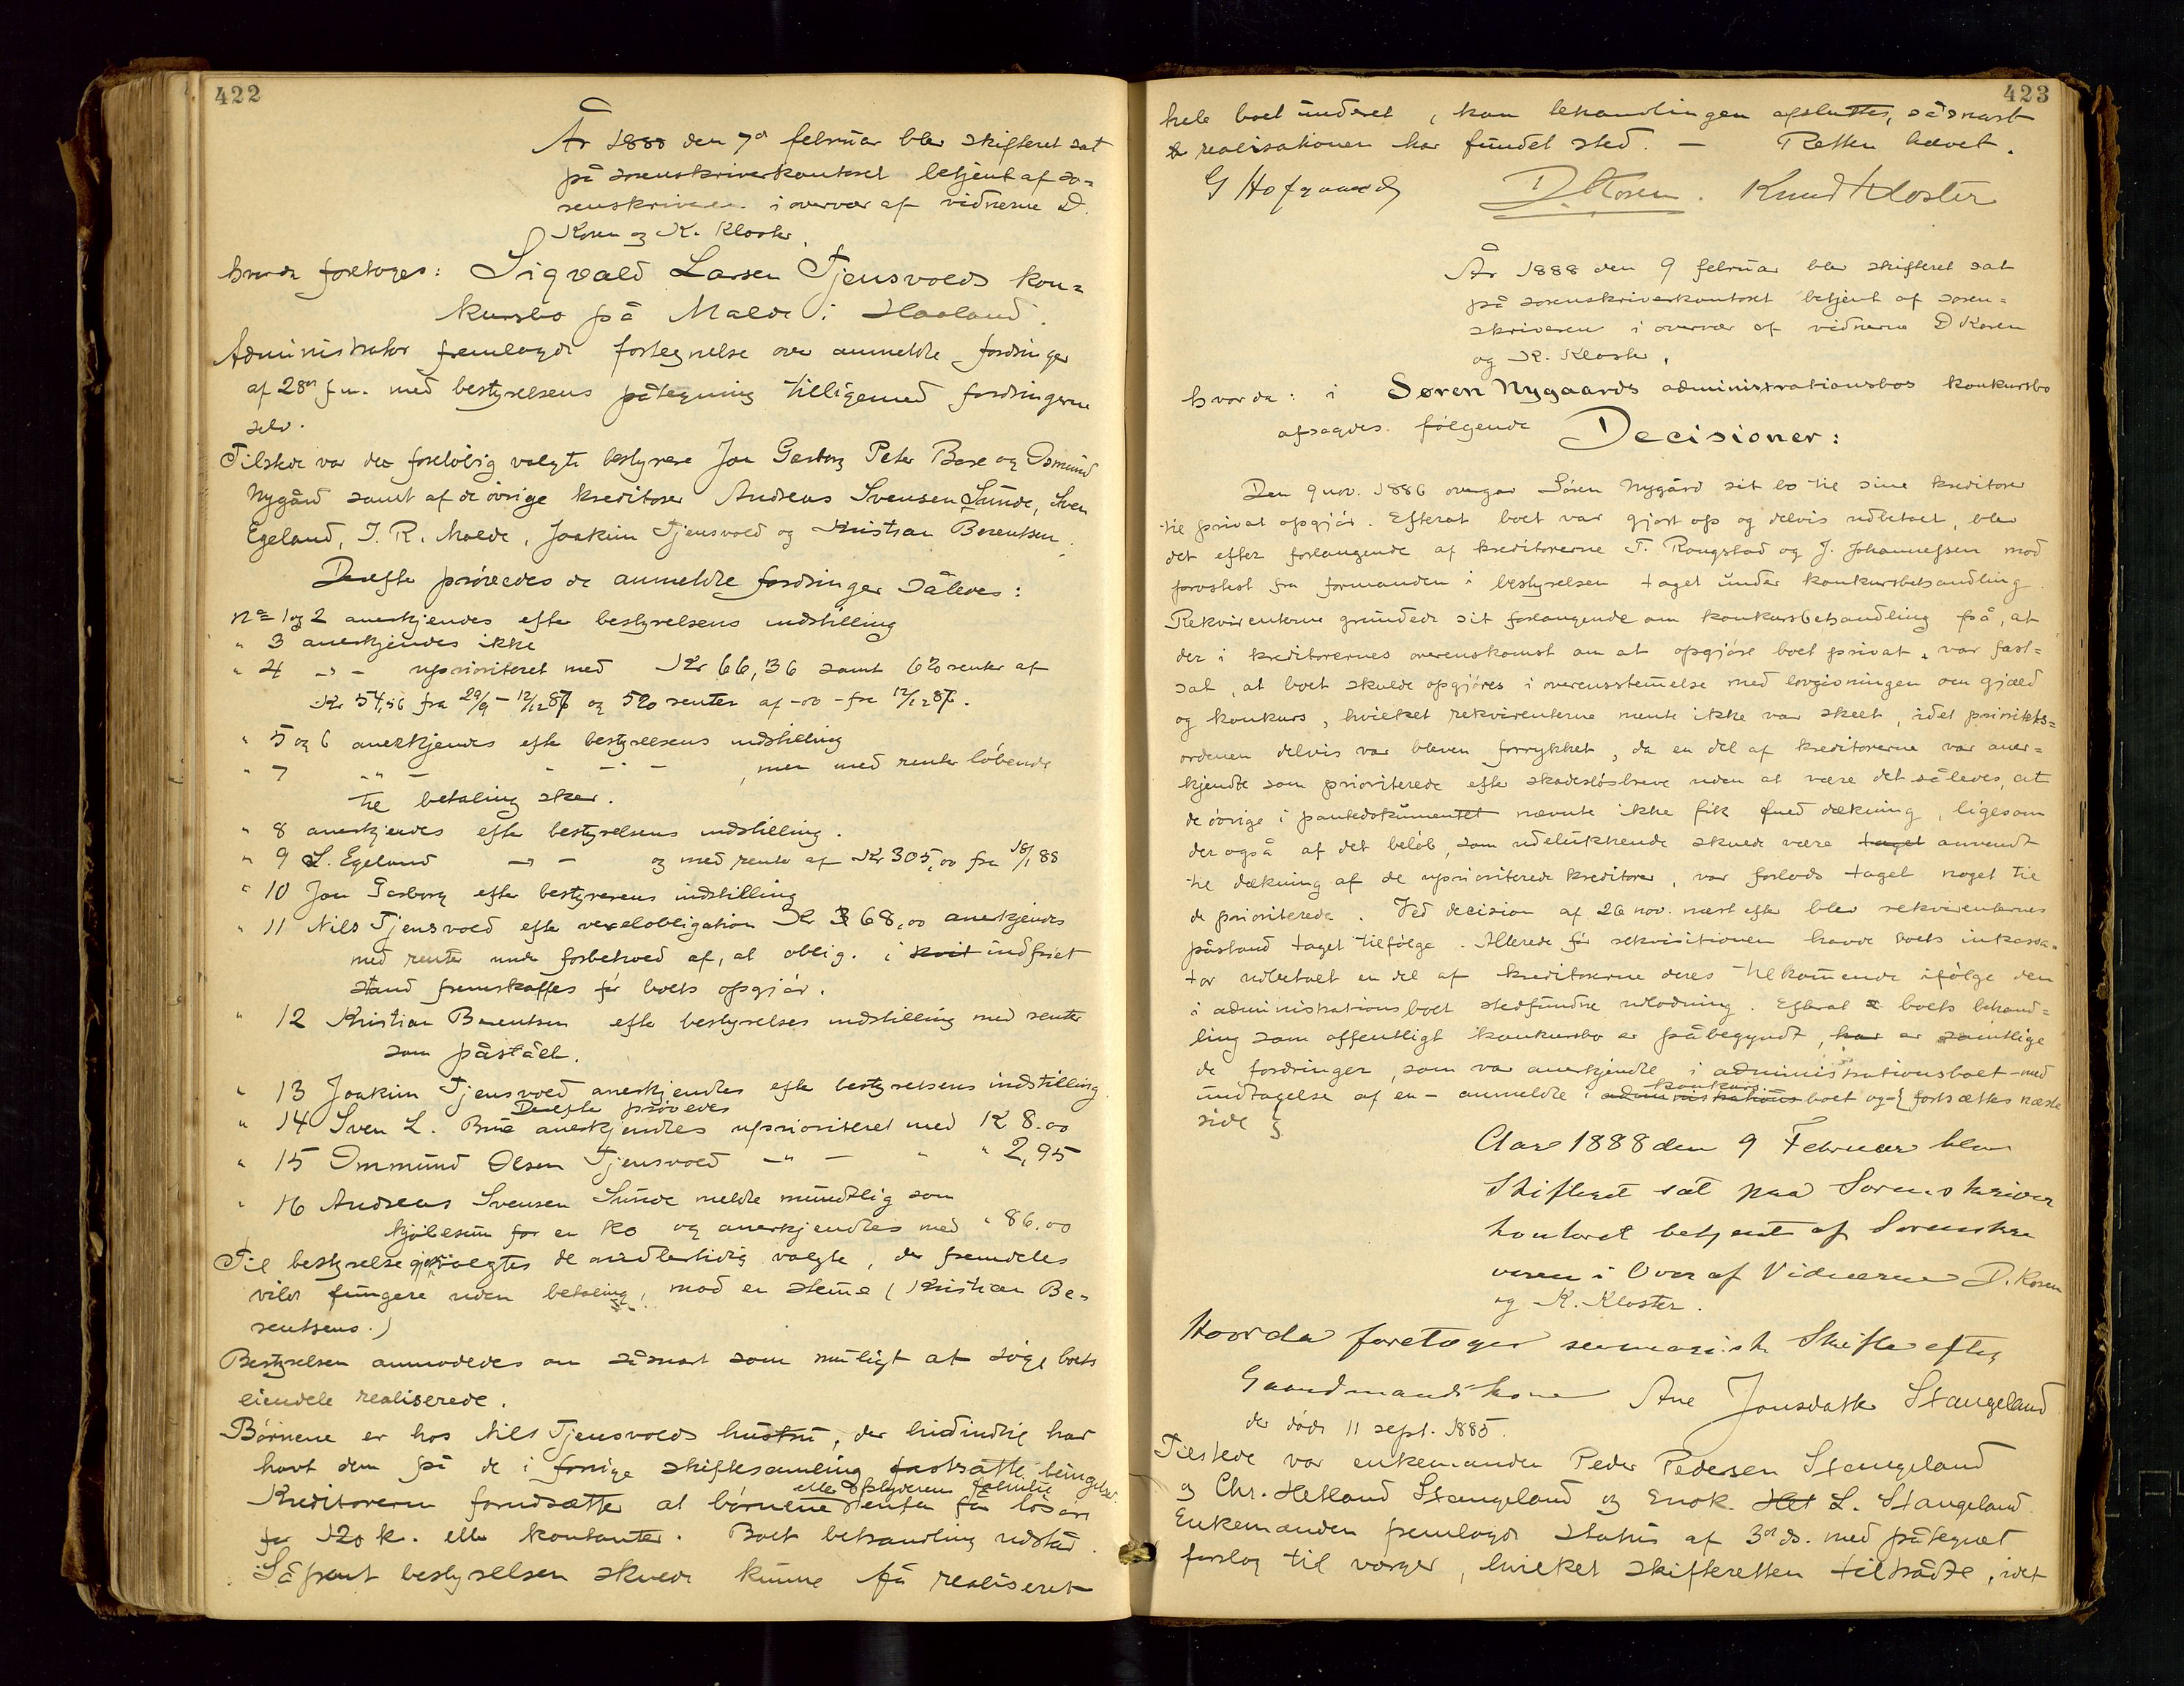 422
År 1888 den 7de februar blev skifteret sat
på sorenskriverkontoret betjent af so=
renskriveren i overvær af vidnerne D.
Koren og K. Kloster.
hvorda foretoges: Sigvald Larsen Tjensvolds kon=
kursbo på Malde i Haaland.
Administrator fremlagde fortegnelse over anmeldte fordringer
af 28de f.m. med bestyrelsens påtegning tilligemed fordringerne
selv.
Tilstede var de foreløbig valgte bestyrere Jon Garborg Peter Boxe og Osmund
Nygård samt af de øvrige kreditorer Andreas Svensen Sunde, Sven
Egeland, T. R. Malde, Joakim Tjensvold og Kristian Berentsen.
Derefter prøvedes de anmeldte fordringer således:
No 1 og 2 anerkjendes efter bestyrelsens indstilling
" 3 anerkjendes ikke
" 4 -"- uprioriteret med Kr 66,36 samt 6% renter af
Kr 54,56 fra 29/9 - 12/12 87 og 5% renter af -do- fra 12/12 87.
" 5 og 6 anerkjendes efter bestyrelsens indstilling
" 7 -"- - - - , men med renter løbende
til betaling sker.
" 8 anerkjendes efter bestyrelsens indstilling.
" 9 L. Egeland -"- og med rente af Kr 305,00 fra 18/1 88
" 10 Jon Garborg efter bestyrerens indstilling
" 11 Nils Tjensvold efter vexelobligation Kr 368,00 anerkjendes
med rente under forbehold af, at oblig. i kvit indfriet
stand fremskaffes før boets opgjør.
" 12 Kristian Berentsen efter bestyrelses indstilling med renter
som påstået.
" 13 Joakim Tjensvold anerkjendtes efter bestyrelsens indstilling
Derefter prøvedes
" 14 Sven L. Brue anerkjendtes uprioriteret med K 8.00
" 15 Ommund Olsen Tjensvold -"- " " 2,95
" 16 Andreas Svensen Sunde meldte mundtlig som
kjøbesum for en ko og anerkjendtes med " 86.00
Til bestyrelse gjenvalgtes de midlertidig valgte, der fremdeles
vilde fungere uden betaling, mod en stemme (Kristian Be=
rentsens.)
Bestyrelsen anmodedes om såsnart som muligt at søge boets
eiendele realiserede.
Børnene er hos Nils Tjensvolds hustru, der hidindtil har
havt dem på de i forrige skiftesamling fastsatte betingelser.
Kreditorerne forudsætter at børnene enten får løsøre
for 120 k. eller kontanter. Boets behandling udstår.
Såfremt bestyrelsen skulde kunne få realiseret
423
hele boet underet, kan behandlingen afsluttes, såsnart
realisationen har fundet sted. — Retten hævet.
G Hofgaard D. Koren. Knud Kloster
År 1888 den 9 februar blev skifteret sat
på sorenskriverkontoret betjent af soren=
skriveren i overvær af vidnerne D Koren
og K. Kloster,
hvorda: i Søren Nygaards administrationsbos konkursbo
afsagdes følgende Decisioner:
Den 9 nov. 1886 overgav Søren Nygård sit bo til sine kreditorer
til privat opgjør. Efterat boet var gjort op og delvis udbetalt, blev
det efter forlangende af kreditorerne T. Rongstad og J. Johannessen mod
forvstest fra formanden i bestyrelsen taget under konkursbehandling.
Rekvirenterne grundede sit forlangende om konkursbehandling på, at
der i kreditorernes overenskomst om at opgjøre boet privat, var fast=
sat, at boet skulde opgjøres i overensstemelse med lovgivningen om gjæld
og konkurs, hvilket rekvirenterne mente ikke var skeet, idet prioritets=
ordenen delvis var bleven forrykket, da en del af kreditorerne var aner=
kjendte som prioriterede efter skadesløsbreve uden at være det således, at
de øvrige i pantedokumentet nævnte ikke fik fuld dækning, ligesom
der også af det beløb, som udelukkende skulde være taget anvendt
til dækning af de uprioriterede kreditorer, var forlods taget noget til
de prioriterede. Ved decision af 26 nov. næst efter blev rekvirenternes
påstand taget tilfølge. Allerede før rekvisitionen havde boets inkassa=
tor udbetalt en del af kreditorerne deres tilkommende ifølge den
i administrationsboet stedfundne udlodning. Efterat boets behand=
ling som offentligt konkursbo er påbegyndt, har er samtlige
de fordringer, som var anerkjendte i administrationsboet – med
undtagelse af en – anmeldte i administrations konkurs boet og { fortsættes næste
side }
Aar 1888 den 9 Februar blev
Skifteret sat paa Sorenskriver
kontoret betjent af Sorenskri
veren i Over af Vidnerne D. Koren
og K. Kloster.
Hvorda foretoges summarisk Skifte efter
Gaardmandskone Ane Jonsdatter Stangeland
der døde 11 sept. 1885.
Tilstede var enkemanden Peder Pedersen Stangeland
og Chr. Hetland Stangeland og Enok Het L. Stangeland.
Enkemanden fremlagde status af 3de ds. med påtegnet
forslag til værger, hvilket skifteretten tiltrådte, idet